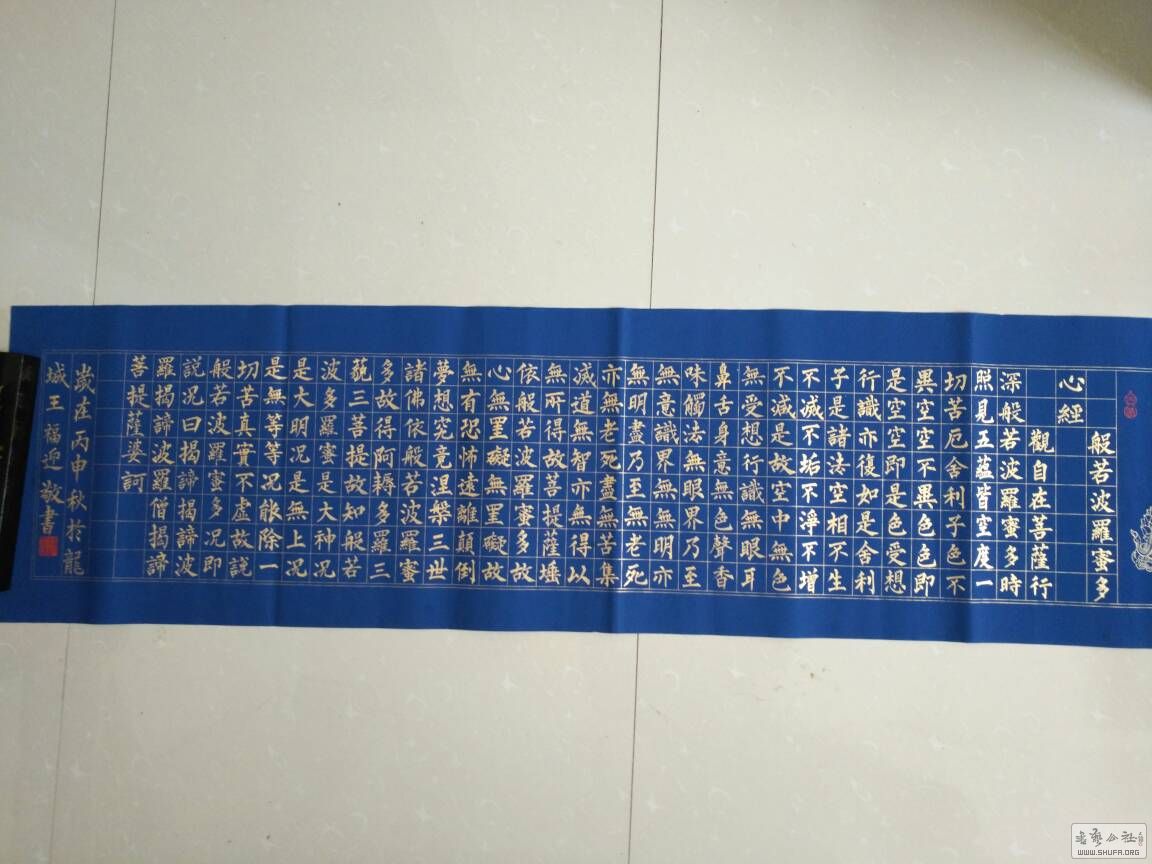 般若波羅蜜多
心經
觀自在菩薩行
深般若波羅蜜多時
照見五蘊皆空度一
切苦厄舍利子色不
異空空不異色色即
是空空即是色受想
行識亦復如是舍利
子是諸法空相不生
不滅不垢不淨不增
不減是故空中無色
無受想行識無眼耳
鼻舌身意無色聲香
味觸法無眼界乃至
無意識界無無明亦
無明盡乃至無老死
亦無老死盡無苦集
滅道無智亦無得以
無所得故菩提薩埵
依般若波羅蜜多故
心無罣礙無罣礙故
無有恐怖遠離顛倒
夢想究竟涅槃三世
諸佛依般若波羅蜜
多故得阿耨多羅三
藐三菩提故知般若
波多羅蜜是大神况
是大明况是無上况
是無等等况能除一
切苦真實不虛故説
般若波羅蜜多况即
説况曰揭諦揭諦波
羅揭諦波羅僧揭諦
菩提薩婆訶
歲在丙申秋於龍
城王福迎敬書
WWW.SHUFA.ORG